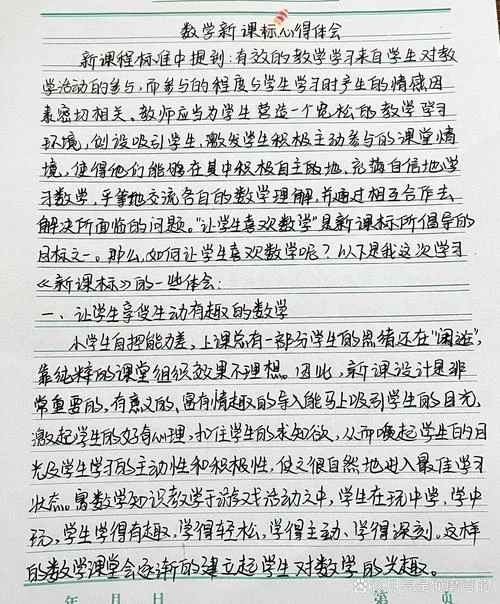 数学新课标心得体会
新课程标准中提到:有效的教学学习来自学生对教
学活动的参与,而参与的程度与学生学习时产生的情感因
素密切相关。教师应当为学生营造一个宽松的教学学习
环境,创设吸引学生,激发学生积极主动参与的课堂情
境,使得他们能够在其中积极自主的地、充满自信地学
习数学,平等地交流各自的数学理解,并通过相互合作去
解决所面临的问题。“让学生喜欢数学”是新课标所倡导的
目标之一。那么,如何让学生喜欢数学呢?以下是我这次学习
《新课标》的一些体会:
一、让学生享受生动有趣的数学
小学生自把能力差,上课总有一部分学生的思绪还在“闲游”,
靠纯粹的课堂组织效果不理想。因此,新课设计是非
常重要的,有意义的、富有情趣的导入能马上吸引学生的目光,
激起学生的好奇心理,扣住学生的求知欲,从而唤起学生的目
光及学生学习的主动性和积极性,使之很自然地进入最佳学习
状态。寓数学知识教学于游戏活动之中,学生在玩中学,学中
玩,学生学得有趣,学得轻松,学得主动、学得深刻。这样
的数学课堂会逐渐的建立起学生对数学的兴趣。
年 月 日 第 页